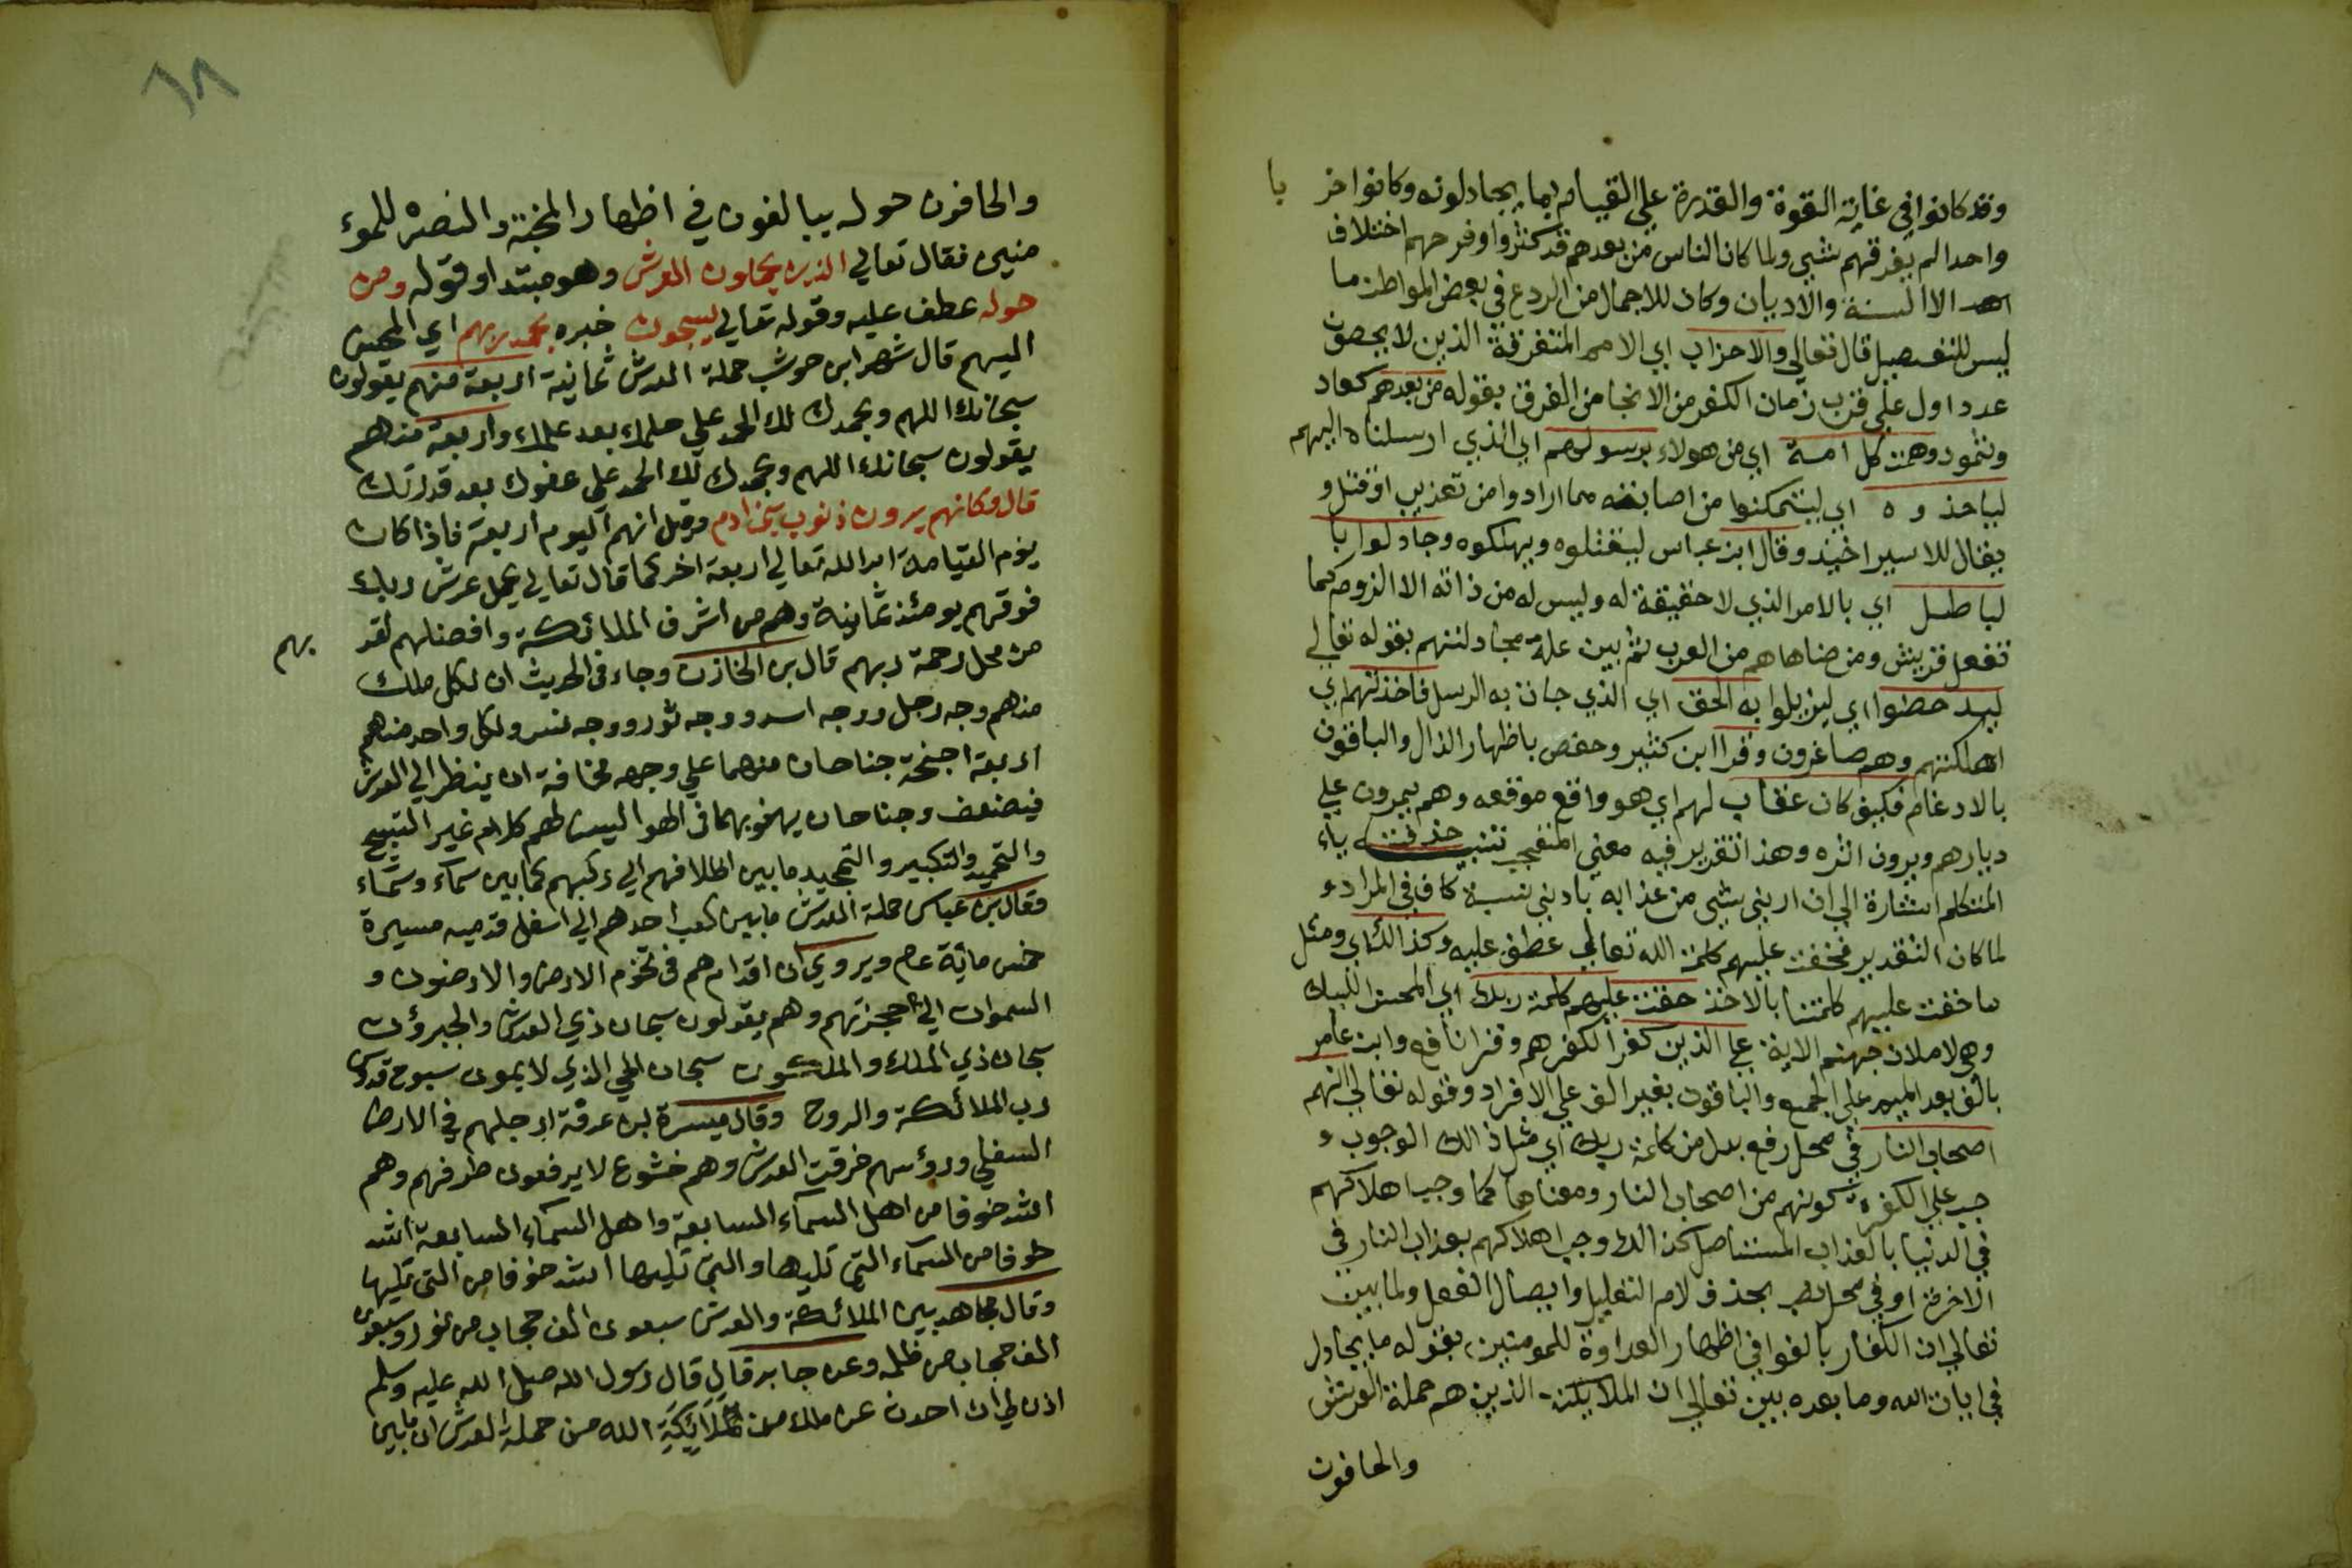 وقد كانوا في غاية القوة والقدرة علي القيام بما يجادلونه وكانوا خر با
واحدا لم يفرقهم شي ولما كان الناس من بعدهم قد كثروا وفرحهم اختلاف
الالسنة والاديان وكان للاجمال من الردع في بعض المواطن ما
ليس للتفصيل قال تعالي والاحزاب اي الامم المتفرقة الذين لا يحصون
عددا ول علي قرب زمان الكفر من الانجا من الفرق بقوله من بعدهم كعاد
وثمود وهمت كل امة اي من هولاء برسولهم اي الذي ارسلناه اليهم
لياخذوه اي ليتمكنوا من اصابته مما ارادوا من تعذيب او قتل و
يقال للاسير اخيذ وقال ابن عباس ليقتلوه ويهلكوه وجادلوا با
لباطل اي بالامر الذي لا حقيقة له وليس له من ذاته الا الزوم كما
تفعل قريش ومن ضاهاهم من العرب ثم بين علة مجادلتهم بقوله تعالي
ليدحضوا اي ليزيلوا به الحق اي الذي جات به الرسل فاخذتهم اي
اهلكتهم وهم صاغرون وقرا ابن كثير وحفص باظهار الذال والباقون
بالادغام فكيف كان عقاب لهم اي هو واقع موقعه وهم يمرون علي
ديارهم ويرون اثره وهذا تقرير فيه معني التعجب تنبيه حذفت ياء
المتكلم اشارة الي ان ادني شي من عذابه بادني نسبة كاف في المراد و
لما كان التقدير فحقت عليهم كلمة الله تعالي عطف عليه وكذالك اي ومثل
ما حقت عليهم كلمتنا بالاخذ حقت عليهم كلمة ربك اي المحسن اليك
وهي لاملان جهنم الاية علي الذين كفروا لكفرهم وقرا نافع وابن عامر
بالف بعد الميم علي الجمع والباقون بغير الف علي الافراد وقوله تعالي انهم
اصحاب النار في محل رفع بدل من كلمة ربك اي مثل ذالك الوجوب و
جب علي الكفرة كونهم من اصحاب النار ومعناها كما وجب اهلاكهم
في الدنيا بالعذاب المستاصل كذالك وجب اهلاكهم بعذاب النار في
الاخرة او في محل نصب بحذف لام التعليل وايصال الفعل ولما بين
تعالي ان الكفار بالغوا في اظهار العداوة للمومنين بقوله ما يجادل
في ايات الله وما بعده بين تعالي ان الملايكة الذين هم حملة العرش
والحافون
٦٨
والحافون حوله يبالغون في اظهار المحبة والنصره للموء
منين فقال تعالي الذين يحملون العرش وهو مبتدا وقوله ومن
حوله عطف عليه وقوله تعالي يسبحون خبره بحمد ربهم اي المحسن
اليهم قال شهر ابن حوشب حملة العرش ثمانية اربعة منهم يقولون
سبحانك اللهم وبحمدك لك الحمد علي حلمك بعد علمك واربعة منهم
يقولون سبحانك اللهم وبحمدك لك الحمد علي عفوك بعد قدرتك
قال وكانهم يرون ذنوب بني ادم وقيل انهم اليوم اربعة فاذا كان
يوم القيامة امد الله تعالي اربعة اخر كما قال تعالي يحمل عرش ربك
فوقهم يومئذ ثمانية وهم من اشرف الملائكة وافضلهم لقر بهم
من محل رحمة ربهم قال بن الخازن وجاء في الحديث ان لكل ملك
منهم وجه رجل ووجه اسد ووجه ثور ووجه نسر ولكل واحد منهم
اربعة اجنحة جناحان منهما علي وجهه مخافة ان ينظر الي العرش
فيضعف وجناحان يهفو بهما في الهوا ليس لهم كلام غير التسبيح
والتحميد والتكبير والتمجيد ما بين اظلافهم الي ركبهم كما بين سماء وسماء
وقال بن عباس حملة العرش ما بين كعب احدهم الي اسفل قدميه مسيرة
خمس مائة عام ويروي ان اقدامهم في تخوم الارض والارضون و
السموات الي حجزتهم وهم يقولون سبحان ذي العرش والجبروت
سبحان ذي الملك والملكوت سبحان الحي الذي لا يموت سبوح قدوس
رب الملائكة والروح وقال ميسرة بن عرفة ارجلهم في الارض
السفلي ورؤسهم خرقت العرش وهم خشوع لا يرفعون طرفهم وهم
اشد خوفا من اهل السماء السابعة واهل السماء السابعة اشد
خوفا من السماء التي تليها والتي تليها اشد خوفا من التي تليها
وقال مجاهد بين الملائكة والعرش سبعون الف حجاب من نور وسبعون
الف حجاب من ظلمه وعن جابر قال قال رسول الله صلي الله عليه وسلم
اذن لي ان احدث عن ملك من ملائكة الله من حملة العرش ان ما بين